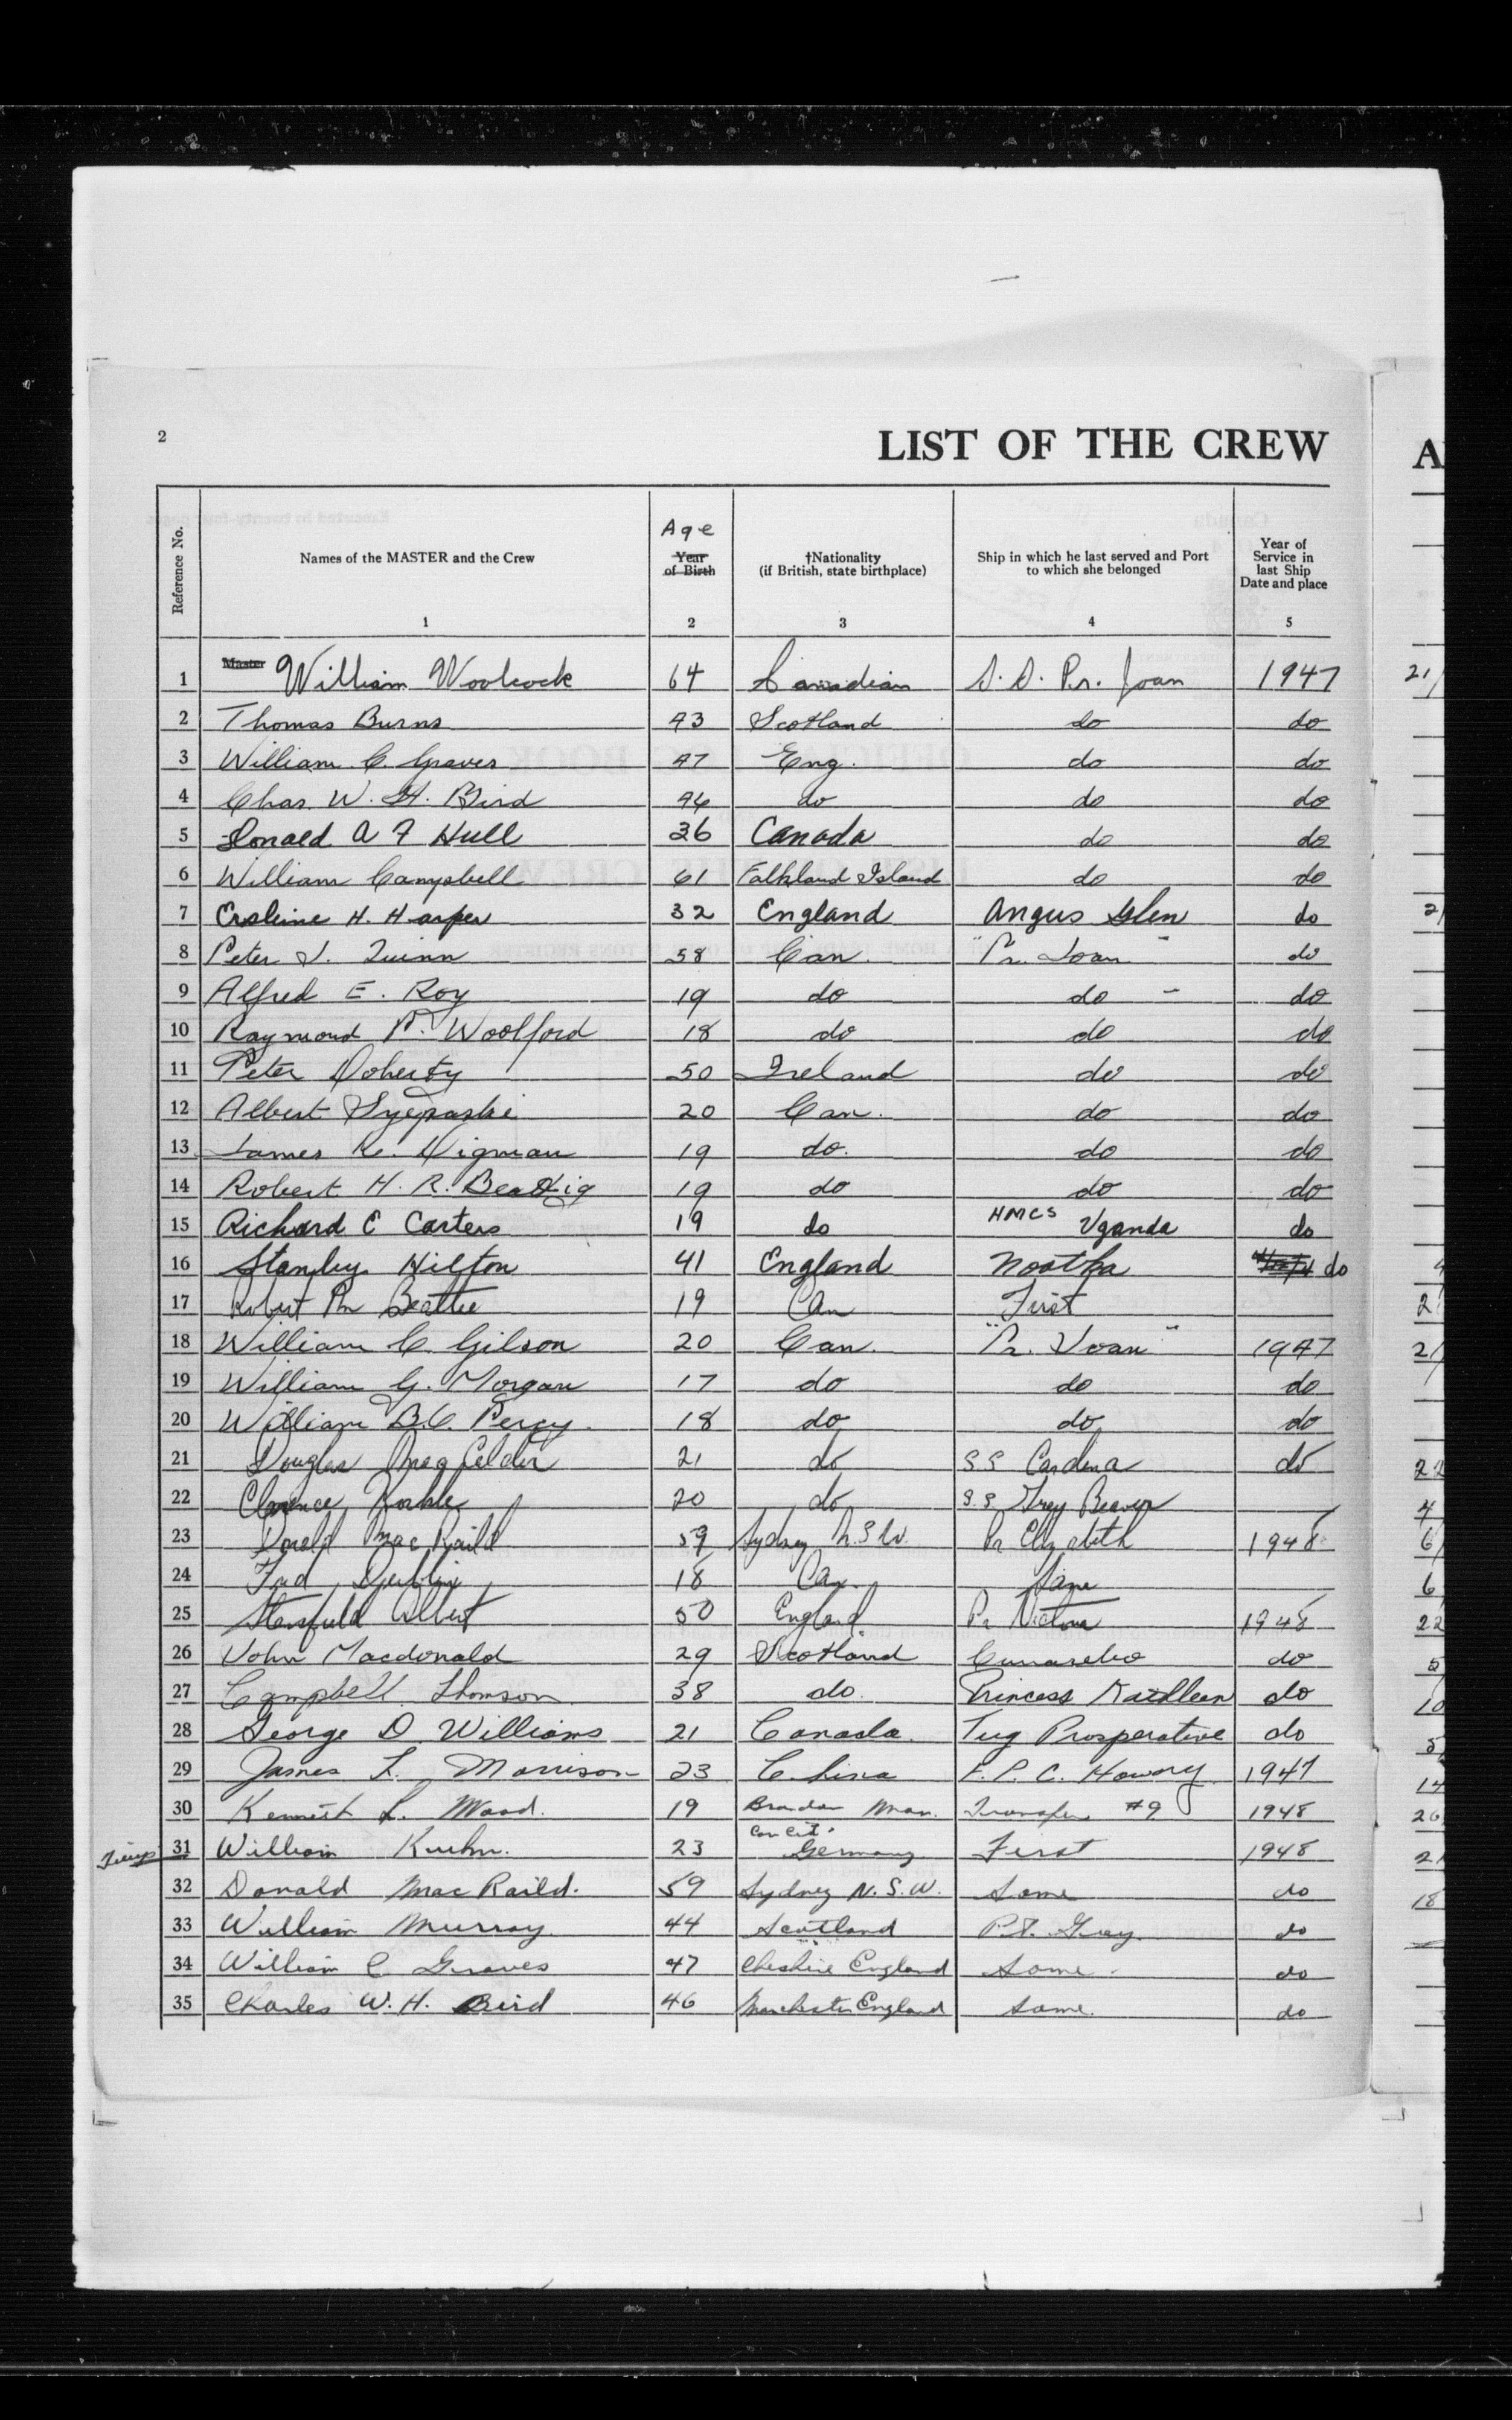 2
LIST OF THE CREW
A
Reference No.
Names of the MASTER and the Crew
Age
Year of Birth
†Nationality
(if British, state birthplace)
Ship in which he last served and Port
to which she belonged
Year of
Service in
last Ship
Date and place
1 2 3 4 5
1 Master William Woolcock 64 Canadian S.S. Pr. Joan 1947
2 Thomas Burns 43 Scotland do do
3 William C. Graves 47 Eng. do do
4 Chas. W. H. Bird 46 do do do
5 Ronald A F Hull 36 Canada do do
6 William Campbell 61 Falkland Island do do
7 Erskine H. Harper 32 England Angus Glen do
8 Peter J. Quinn 58 Can. "Pr. Joan" do
9 Alfred E. Roy 19 do do - do
10 Raymond P. Woolford 18 do do do
11 Peter Doherty 50 Ireland do do
12 Albert 20 Can. do do
13 James K. Digman 19 do. do do
14 Robert H. R. 19 do do do
15 Richard C Carters 19 do HMCS Uganda do
16 Stanley Hilton 41 England Nootka do
17 Robert Beattie 19 Can First
18 William C. Gilson 20 Can. "Pr. Joan" 1947
19 William G. Morgan 17 do do do
20 William B.C. Percy 18 do do do
21 Douglas 21 do SS Cardena do
22 Clarence 20 do S.S. Grey Beaver
23 Donald MacRaild 59 Sydney N.S.W. Pr Elizabeth 1948
24 18 Can. Same
25 Stansfield Albert 50 England Pr Victoria 1948
26 John Macdonald 29 Scotland do
27 Campbell Thomson 38 do. Princess Kathleen do
28 George D. Williams 21 Canada. Tug Prosperative do
29 James L. Morrison 23 China 1947
30 Kenneth L. Wood. 19 Brandon Man. Transfer #9 1948
31 William Kuehn. 23 Can Cit. Germany First 1948
32 Donald MacRaild. 59 Sydney N.S.W. Same do
33 William Murray 44 Scotland Pt. Gray. do
34 William C Graves 47 Cheshire England Same. do
35 Charles W. H. Bird 46 Manchester England Same. do